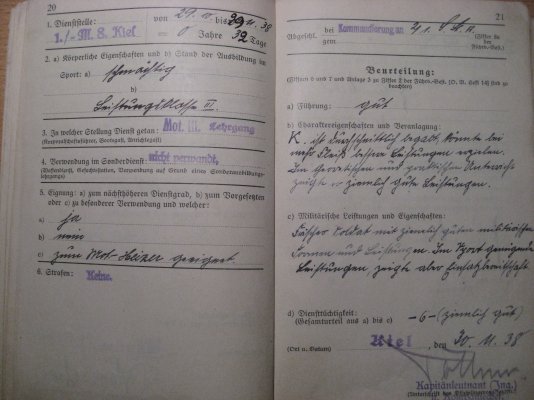 20
1. Dienststelle:
1./-M. S. Kiel
von 29. IV. bis 29. 11. 38
= 0 Jahre 32 Tage
2. a) Körperliche Eigenschaften und b) Stand der Ausbildung im
Sport: a) schmächtig
b)
Leistungsklasse II.
3. In welcher Stellung Dienst getan: Mot. III. Lehrgang
4. Verwendung im Sonderdienst nicht verwandt,
5. Eignung: a) zum nächsthöheren Dienstgrad, b) zum Vorgesetzten
oder c) zu besonderer Verwendung und welcher:
a) ja
b) nein
c) zum Mot. Heizer geeignet.
6. Strafen: Keine.
21
bei
Abgeschl. gem. Kommandierung an
(Ziffer der Führen.-Best.)
Beurteilung:
(Ziffern 6 und 7 und Anlage 3 zu Ziffer 7 der Führen.-Best. [D. A. Heft 14] sind zu
beachten)
a) Führung: gut
b) Charaktereigenschaften und Veranlagung:
K. ist durchschnittlich begabt, könnte bei
mehr Fleiß bessere Leistungen erzielen.
Im theoretischen und praktischen Unterricht
zeigte er ziemlich gute Leistungen.
c) Militärische Leistungen und Eigenschaften:
Soldat mit ziemlich guten militärischen
Formen und Leistungen. Im Sport genügende
Leistungen, zeigte aber Einsatzbereitschaft
d) Diensttüchtigkeit:
(Gesamturteil aus a) bis c) -6- (ziemlich gut)
Kiel, den 30. 11. 38
(Ort u. Datum)
Kapitänleutnant (Ing.)